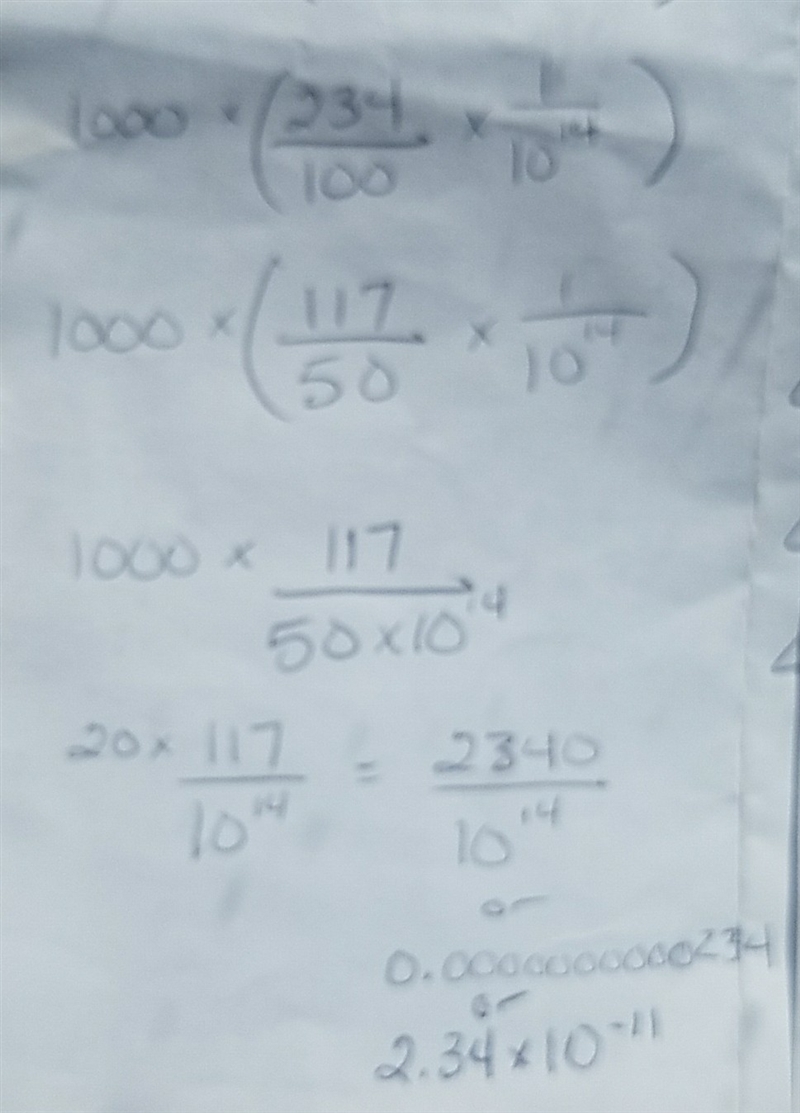 1000 × (234/100 × 1/10^14)
1000 × (117/50 × 1/10^14)
1000 × 117/(50×10^14)
20 × 117/10^14 = 2340/10^14
or
0.0000000000234
or
2.34×10^-11